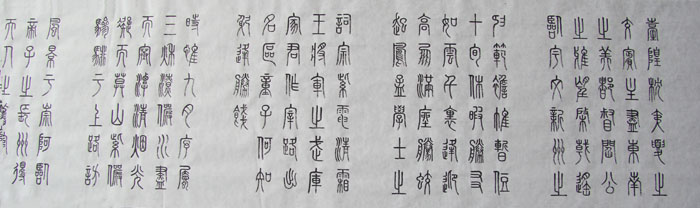 臺隍枕夷夏之
交賓主盡東南
之美都督閻公
之雅望棨戟遙
臨宇文新州之
範襜帷暫
十旬休暇勝友
如雲千里逢迎
高朋滿座騰蛟
起鳳孟學士之
詞宗紫電清霜
王將軍之武庫
家君作宰路出
名區童子何知
躬逢勝餞
時維九月序屬
三秋潦水盡
而寒潭清烟光
凝而莫山紫儼
驂騑于上路訪
風景于崇阿臨
帝子之長洲得
天人之舊